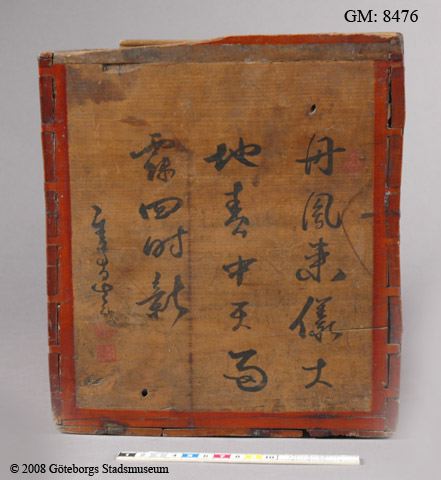 GM: 8476
丹鳳來儀大
地春中天雨
露四時新
© 2008 Göteborgs Stadsmuseum